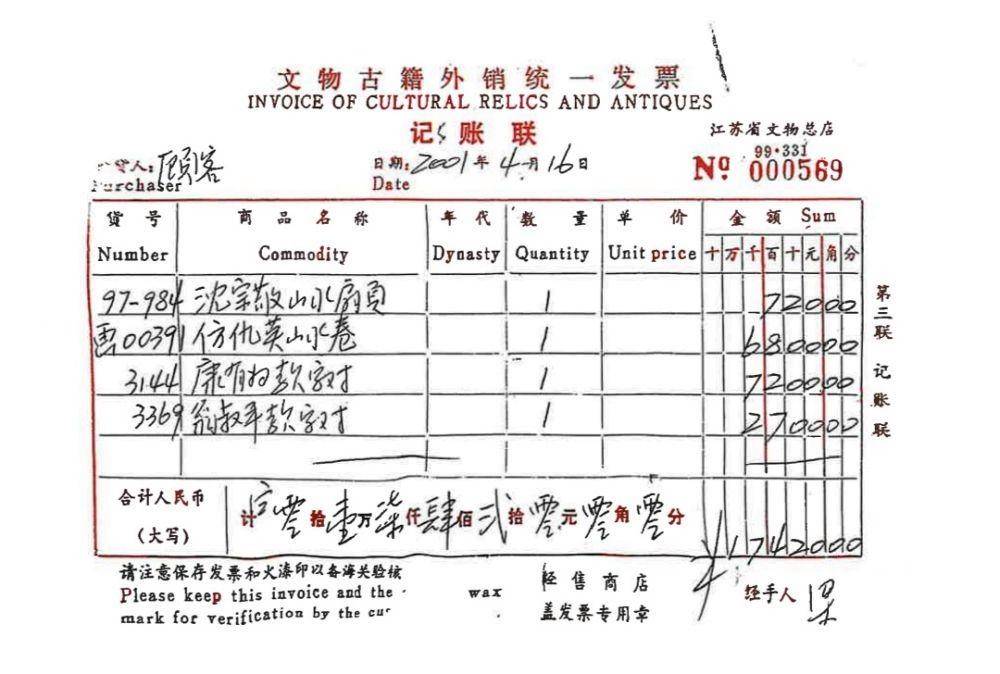 文物古籍外销统一发票
INVOICE OF CULTURAL RELICS AND ANTIQUES
记账联
江苏省文物总店
货人：顾客
Purchaser
日期：2001年4月16日
Date
99·331
Nº 000569
货号 商品名称 年代 数量 单价 金额 Sum
Number Commodity Dynasty Quantity Unit price 十万千百十元角分
97-984 沈宗敬山水扇页 1 72000
画00391 仿仇英山水卷 1 680000
3144 康有为款字对 1 720000
3369 翁叔平款字对 1 270000
合计人民币
（大写）
计零拾壹万柒仟肆佰贰拾零元零角零分
¥1742000
第三联 记账联
请注意保存发票和火漆印以备海关验核
Please keep this invoice and the wax
mark for verification by the cus
经售商店
盖发票专用章
经手人 梁